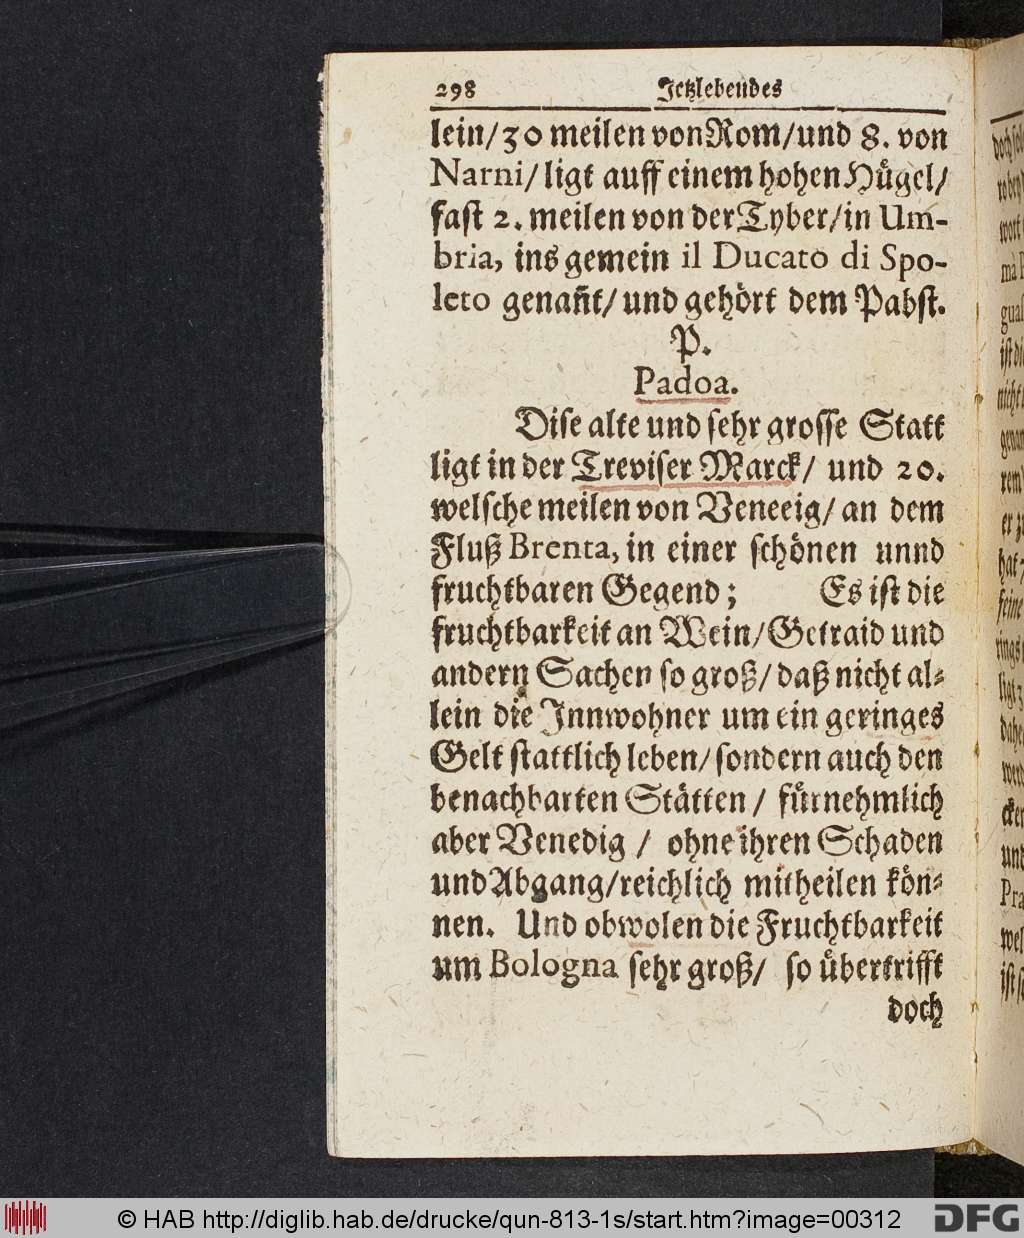 298 Jetzlebendes
lein/30 meilen von Rom/und 8. von
Narni/ligt auff einem hohen Hügel/
fast 2. meilen von der Tyber/in Um-
bria, ins gemein il Ducato di Spo-
leto genañt/und gehört dem Pabst.
P.
Padoa.
Dise alte und sehr grosse Statt
ligt in der Treviser Marck/ und 20.
welsche meilen von Veneeig/an dem
Fluß Brenta, in einer schönen unnd
fruchtbaren Gegend; Es ist die
fruchtbarkeit an Wein/Getraid und
andern Sachen so groß/daß nicht al-
lein die Innwohner um ein geringes
Gelt stattlich leben/sondern auch den
benachbarten Stätten/ fürnehmlich
aber Venedig / ohne ihren Schaden
und Abgang/reichlich mitheilen kön-
nen. Und obwolen die Fruchtbarkeit
um Bologna sehr groß/ so übertrifft
doch
© HAB http://diglib.hab.de/drucke/qun-813-1s/start.htm?image=00312
DFG